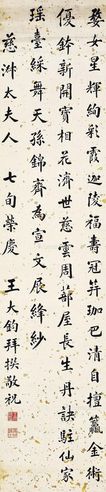 婺女星輝絢彩霞迦陵福壽冠笄珈巴清自擅籯金術
優鉢新開寶相花濟世慈雲周蔀屋長生丹訣駐仙家
瑤臺綵舞天孫錦齊為宣文展絳紗
慈淑太夫人 七旬榮慶 王大鈞拜撰敬祝